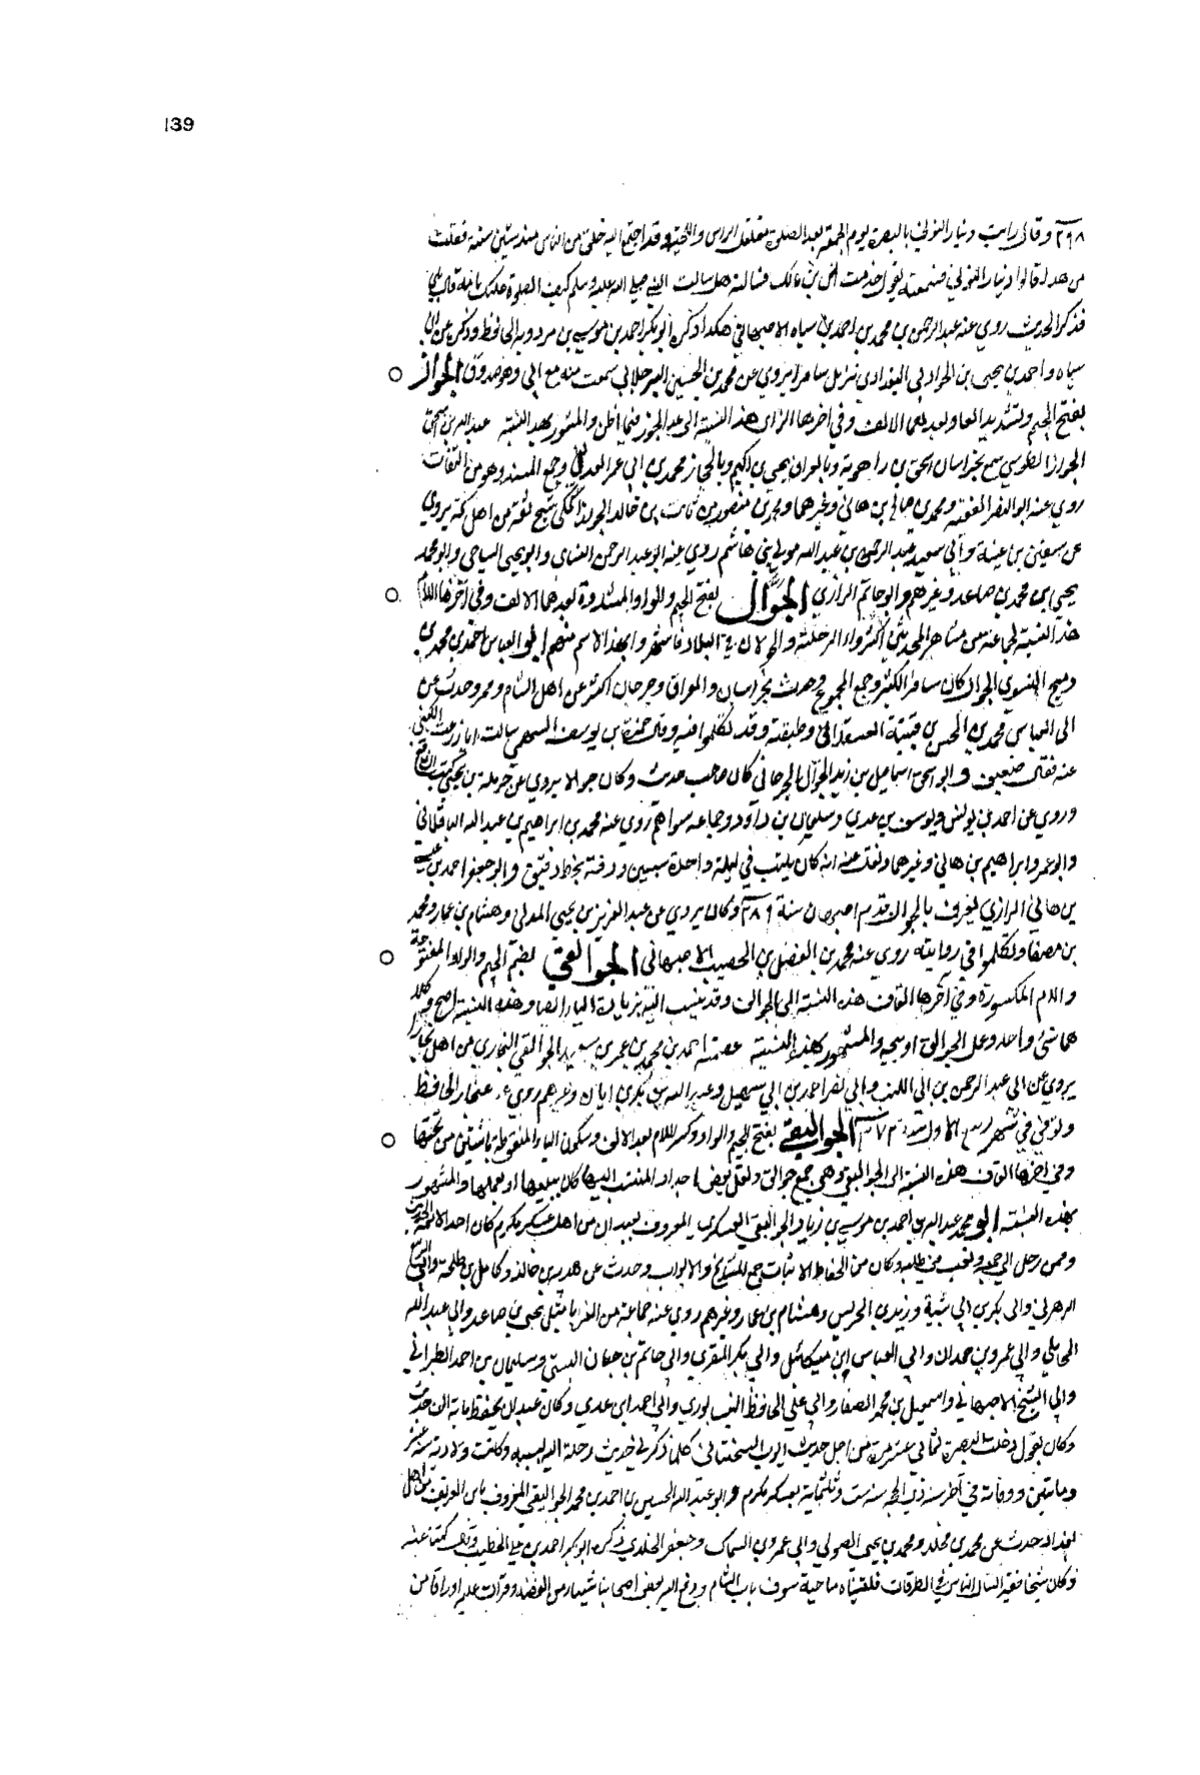 139
٢٩٨ وقال رايت دينار النوبي بالبصرة يوم الجمعة بعد الصلوة مفلفل الراس واللحية وقد اجتمع اليه خلق من الناس منذ ستين سنة فقلت
من هذا قالوا دينار النوبي فسمعته يقول خدمت انس بن مالك فسالته هل سالت النبي صلى الله عليه وسلم كيف الصلوة عليك
فذكر الحديث روي عنه عبد الرحمن بن محمد بن احمد بن سياه الاصبهاني هكذا ذكره ابو بكر احمد بن موسى بن مردويه الحافظ وذكره عن
سياه واحمد بن يحيى بن الجوادي البغدادي نزيل سامرا يروي عن محمد بن الحسين البرجلاني سمعت منه مع ابي وهو صدوق الجواز
بفتح الجيم وتشديد الواو بعدها الالف وفي اخرها الزاي هذه النسبة الى الجوز فيما اظن والمشهور بهذه النسبة عبد الله بن اسحق
الجواز الطوسي سمع بخراسان اسحق بن راهوية وبالعراق يحيى بن اكثم وبالحجاز محمد بن ابي عمر العدني وجمع المسند وهو من الثقات
روي عنه ابو النضر الفقيه ومحمد بن صالح بن هاني وغيرهما ومحمد بن منصور بن ثابت بن خالد الجواز المكي شيخ ثقة من اهل مكة يروي
عن سفين بن عيينة وابي سعيد عبد الرحمن بن عبد الله مولى بني هاشم روي عنه ابو عبد الرحمن النساي وابو يحيى الساجي وابو محمد
يحيى بن محمد بن صاعد وغيرهم وابو حاتم الرازي الجوال بفتح الجيم والواو المشددة بعدهما الالف وفي اخرها اللام
هذه النسبة لجماعة من مشاهير المحدثين اكثروا الرحلة والجولان في البلاد فاشتهروا بهذا الاسم منهم ابو العباس احمد بن محمد بن
رميح النسوي الجوال كان سافر الكثير وجمع الجموع وحدث بخراسان والعراق وجرجان اكثر عن اهل الشام ومصر وحدث عن
ابي العباس محمد بن الحسن بن قتيبة العسقلاني وطبقته وقد تكلموا فيه وقال حمزة بن يوسف السهمي سالت ابا زرعة الكشي
عنه فقال ضعيف وابو اسحق اسماعيل بن زيد الجوال الجرجاني كان صاحب حديث وكان جوالا يروي عن حرملة بن يحيى
وروي عن احمد بن يونس ويوسف بن عدي وسليمان بن داود وجماعة سواهم روي عنه محمد بن ابراهيم بن عبد الله الباقلاني
وابو عمرو ابراهيم بن هاني وغيرهما ونقل عنه انه كان يكتب في ليلة واحدة سبعين ورقة بخط دقيق وابو جعفر احمد بن
بن هاني الرازي يعرف بالجوال قدم اصبهان سنة ٢٨٦ وكان يروي عن عبد العزيز بن يحيى المدني وهشام بن عمار ومحمد
بن مصفا وتكلموا في روايته روي عنه محمد بن الفضل بن الخصيب الاصبهاني الجوالقي بضم الجيم والواو المفتوحة
واللام المكسورة وفي اخرها القاف هذه النسبة الى الجوالق وقد ينسب اليه بزيادة الياء ايضا وهذه النسبة اصح وكلا
هما شئ واحد وعمل الجوالق او بيعه والمشهور بهذه النسبة عصمة احمد بن محمد بن عمر بن سعيد الجوالقي البخاري من اهل بخارا
يروي عن ابي عبد الرحمن بن ابي الليث وابي نصر احمد بن ابي سهيل وعبد الله بن بكر بن ابان وغيرهم روي عنه غنجار الحافظ
وتوفي في شهر ربيع الاول سنة الجواليقي بفتح الجيم والواو وكسر اللام بعد الالف وسكون الياء المنقوطة باثنتين من تحتها
وفي اخرها القاف هذه النسبة الى الجواليق وهي جمع جوالق ولعل بعض اجداد المنتسب اليها كان يبيعها او يعملها والمشهور
بهذه النسبة ابو محمد عبد الله بن احمد بن موسى بن زياد الجواليقي العسكري المعروف بعبدان من اهل عسكر مكرم كان احد الائمة
وممن رحل الى جمعه وتعب في طلبه وكان من الحفاظ الاثبات جمع المشايخ والابواب وحدث عن هدبة بن خالد وكامل بن طلحة وابي الربيع
الزهراني وابي بكر بن ابي شيبة وزيد بن الحريش وهشام بن عمار وغيرهم روي عنه جماعة من الغربا مثل يحيى بن صاعد وابي عبد الله
المحاملي وابي عمرو بن حمدان وابي العباس ابن ميكائيل وابي بكر المقري وابي حاتم بن حبان البستي وسليمان بن احمد الطبراني
وابي الشيخ الاصبهاني واسمعيل بن محمد الصفار وابي علي الحافظ النيسابوري وابي احمد ابن عدي وكان عبدان يحفظ مائة الف حديث
وكان يقول دخلت البصرة ثماني عشر مرة من اجل حديث ايوب السختياني كلما ذكر لي حديث رحلت اليه بسببه وكانت ولادته سنة عشر
ومائتين ووفاته في آخر سنة ذي الحجة سنة ست وثلثماية بعسكر مكرم وابو عبد الله الحسين بن احمد بن محمد الجواليقي المعروف بابن العريف من اهل
بغداد حدث عن محمد بن مخلد ومحمد بن يحيى الصولي وابي عمرو بن السماك وجعفر الخلدي ذكره ابو بكر احمد بن علي الخطيب وقال كتبنا عنه
وكان شيخا فقيرا يسال الناس في الطرقات فلقيناه ناحية سوق باب الشام ودفع اليه بعض اصحابنا شيئا من الفضة وقرات عليه اوراقا من